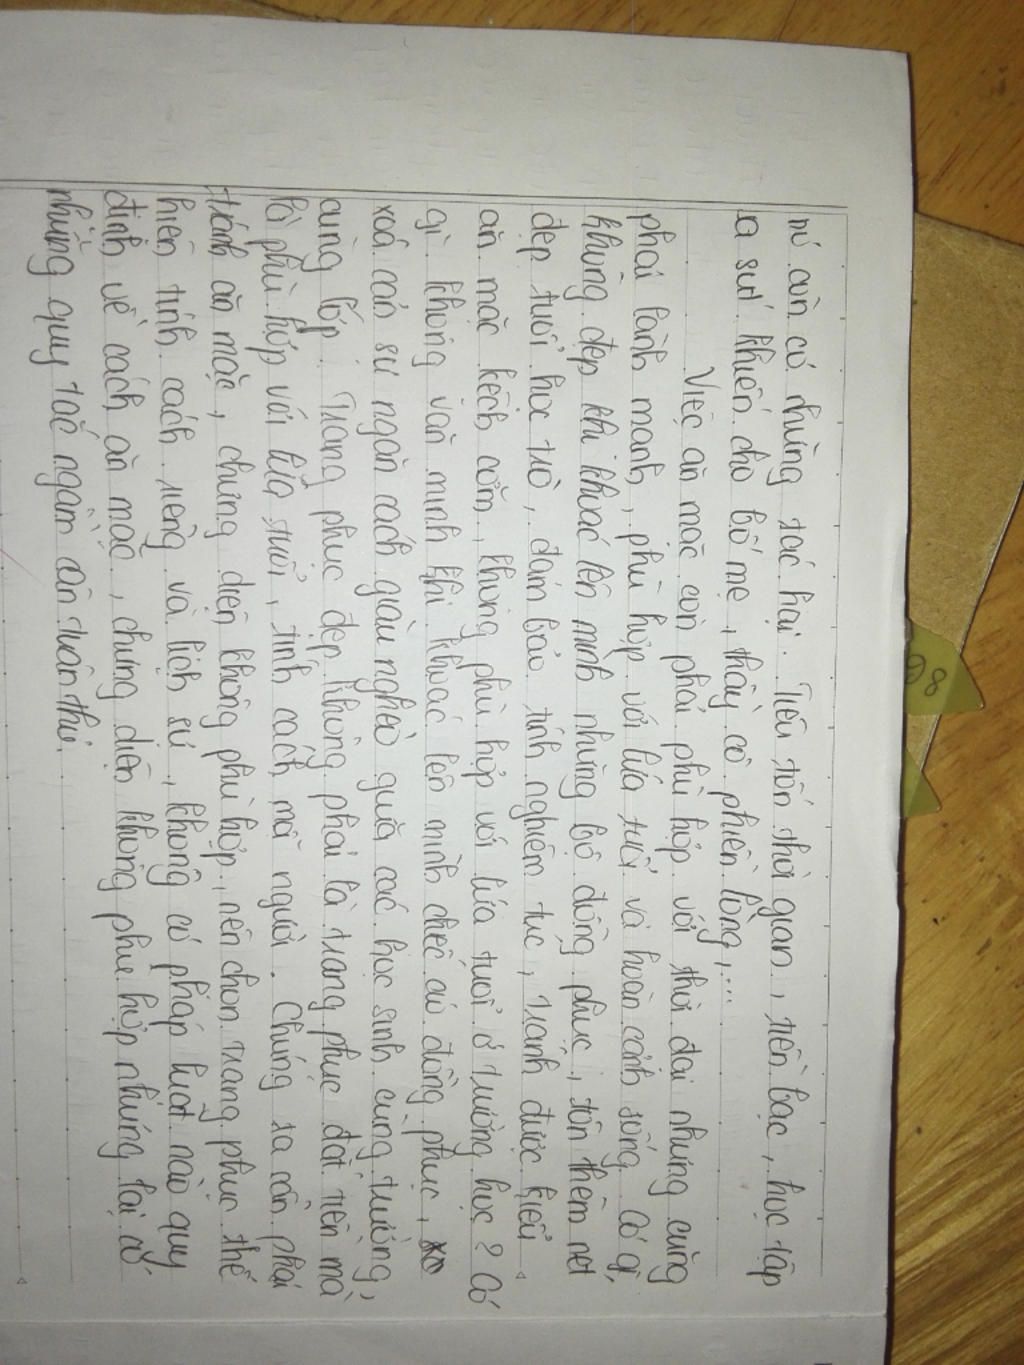 nó còn có những tác hại. Tiêu tốn thời gian, tiền bạc, học tập
a sút khiến cho bố mẹ, thầy cô phiền lòng,...
Việc ăn mặc còn phải phù hợp với thời đại nhưng cũng
phải lành mạnh, phù hợp với lứa tuổi và hoàn cảnh sống. Có gì
không đẹp khi khoác lên mình những bộ đồng phục, tôn thêm nét
đẹp tuổi học trò, đảm bảo tính nghiêm túc, tránh được kiểu
ăn mặc kệch cỡm, không phù hợp với lứa tuổi ở trường học? Có
gì không văn minh khi khoác lên mình chiếc áo đồng phục,
xoá cán sự ngăn cách giàu nghèo giữa các học sinh cùng trường,
cùng lớp. Trang phục đẹp không phải là trang phục đắt tiền mà
là phù hợp với lứa tuổi, tính cách mỗi người. Chúng ta cần phải
tránh ăn mặc, chưng diện không phù hợp, nên chọn trang phục thể
hiện tính cách riêng và lịch sự, không có pháp luật nào quy
định về cách ăn mặc, chưng diện không phù hợp nhưng lại có
những quy tắc ngầm cần tuân thủ.
98